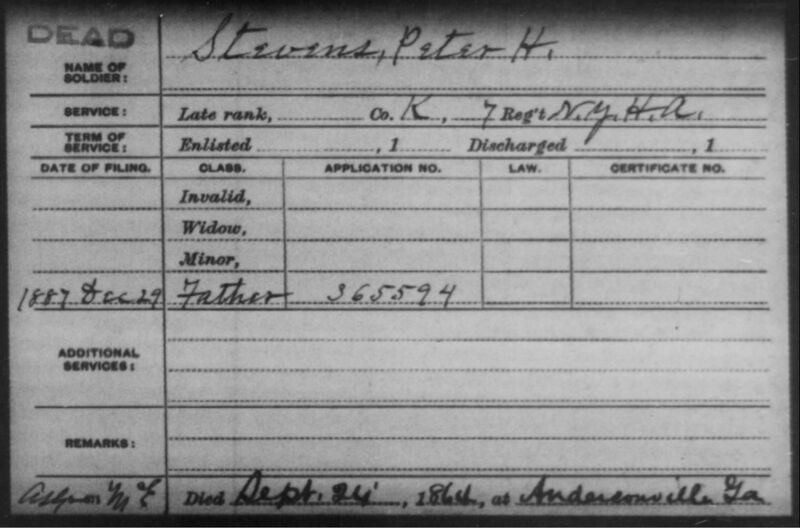 DEAD
NAME OF SOLDIER: Stevens, Peter H.
SERVICE: Late rank, Co. K, 7 Reg't N.Y.H.A.
TERM OF SERVICE: Enlisted , 1 Discharged , 1
DATE OF FILING. CLASS. APPLICATION NO. LAW. CERTIFICATE NO.
Invalid,
Widow,
Minor,
1887 Dec 29 Father 365594
ADDITIONAL SERVICES:
REMARKS:
Died Sept. 24, 1864, at Andersonville Ga